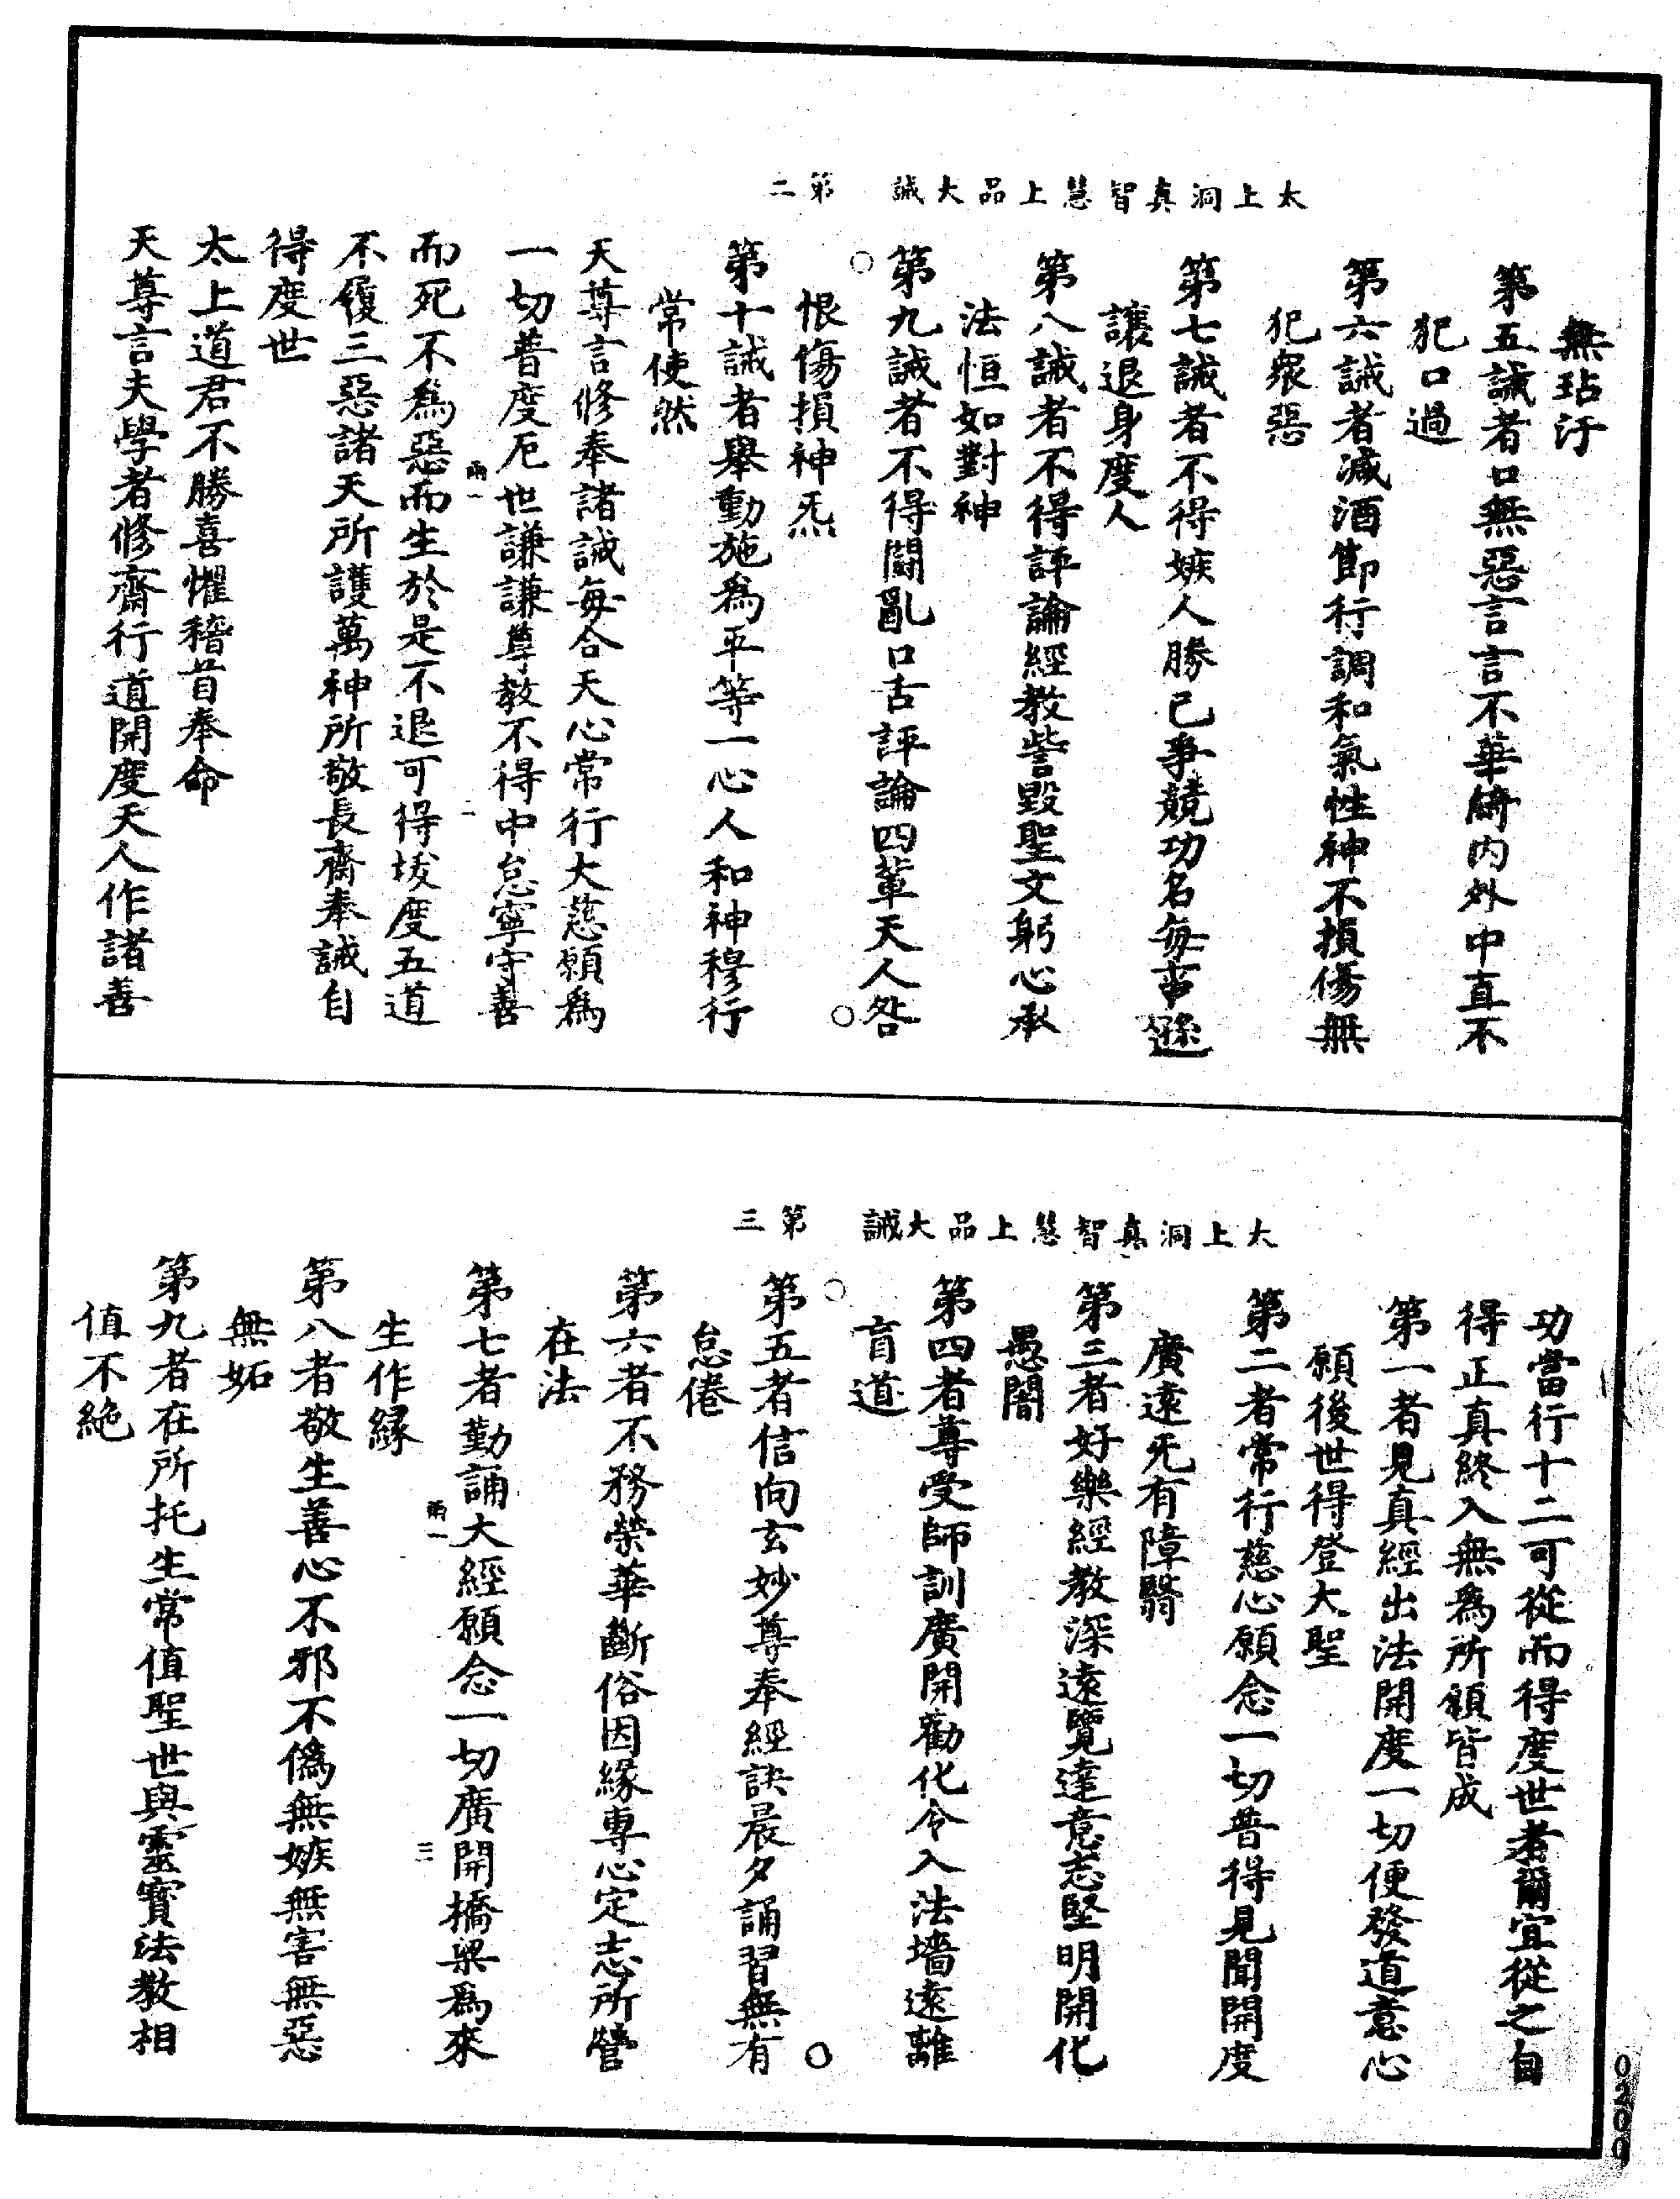 太上洞真智慧上品大誡　第二
無玷汙
第五誡者口無惡言言不華綺内外中直不
犯口過
第六誡者減酒節行調和氣性神不損傷無
犯衆惡
第七誡者不得嫉人勝己爭競功名每事遜
讓退身度人
第八誡者不得評論經教訾毀聖文躬心承
法恒如對神
第九誡者不得鬪亂口舌評論四輩天人咎
恨傷損神炁
第十誡者舉動施爲平等一心人和神穆行
常使然
天尊言修奉諸誡每合天心常行大慈願爲
一切普度厄世謙謙尊教不得中怠寧守善
而死不爲惡而生於是不退可得拔度五道
不履三惡諸天所護萬神所敬長齋奉誡自
得度世
太上道君不勝喜懼稽首奉命
天尊言夫學者修齋行道開度天人作諸善
雨一
二
太上洞真智慧上品大誡　第三
功當行十二可從而得度世者爾宜從之自
得正真終入無爲所願皆成
第一者見真經出法開度一切便發道意心
願後世得登大聖
第二者常行慈心願念一切普得見聞開度
廣遠旡有障翳
第三者好樂經教深遠覽達意志堅明開化
愚闇
第四者尊受師訓廣開勸化令入法墻遠離
盲道
第五者信向玄妙尊奉經訣晨夕誦習無有
怠倦
第六者不務榮華斷俗因緣專心定志所營
在法
第七者勤誦大經願念一切廣開橋梁爲來
生作緣
第八者敬生善心不邪不僞無嫉無害無惡
無妬
第九者在所托生常值聖世與靈寳法教相
值不絶
雨一
三
0200